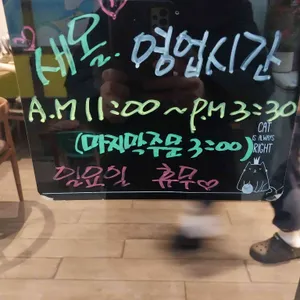 새올. 영업시간
A.M 11:00 ~ P.M 3:30
(마지막주문 3:00)
일요일 휴무
CAT
IS ALWAYS
RIGHT